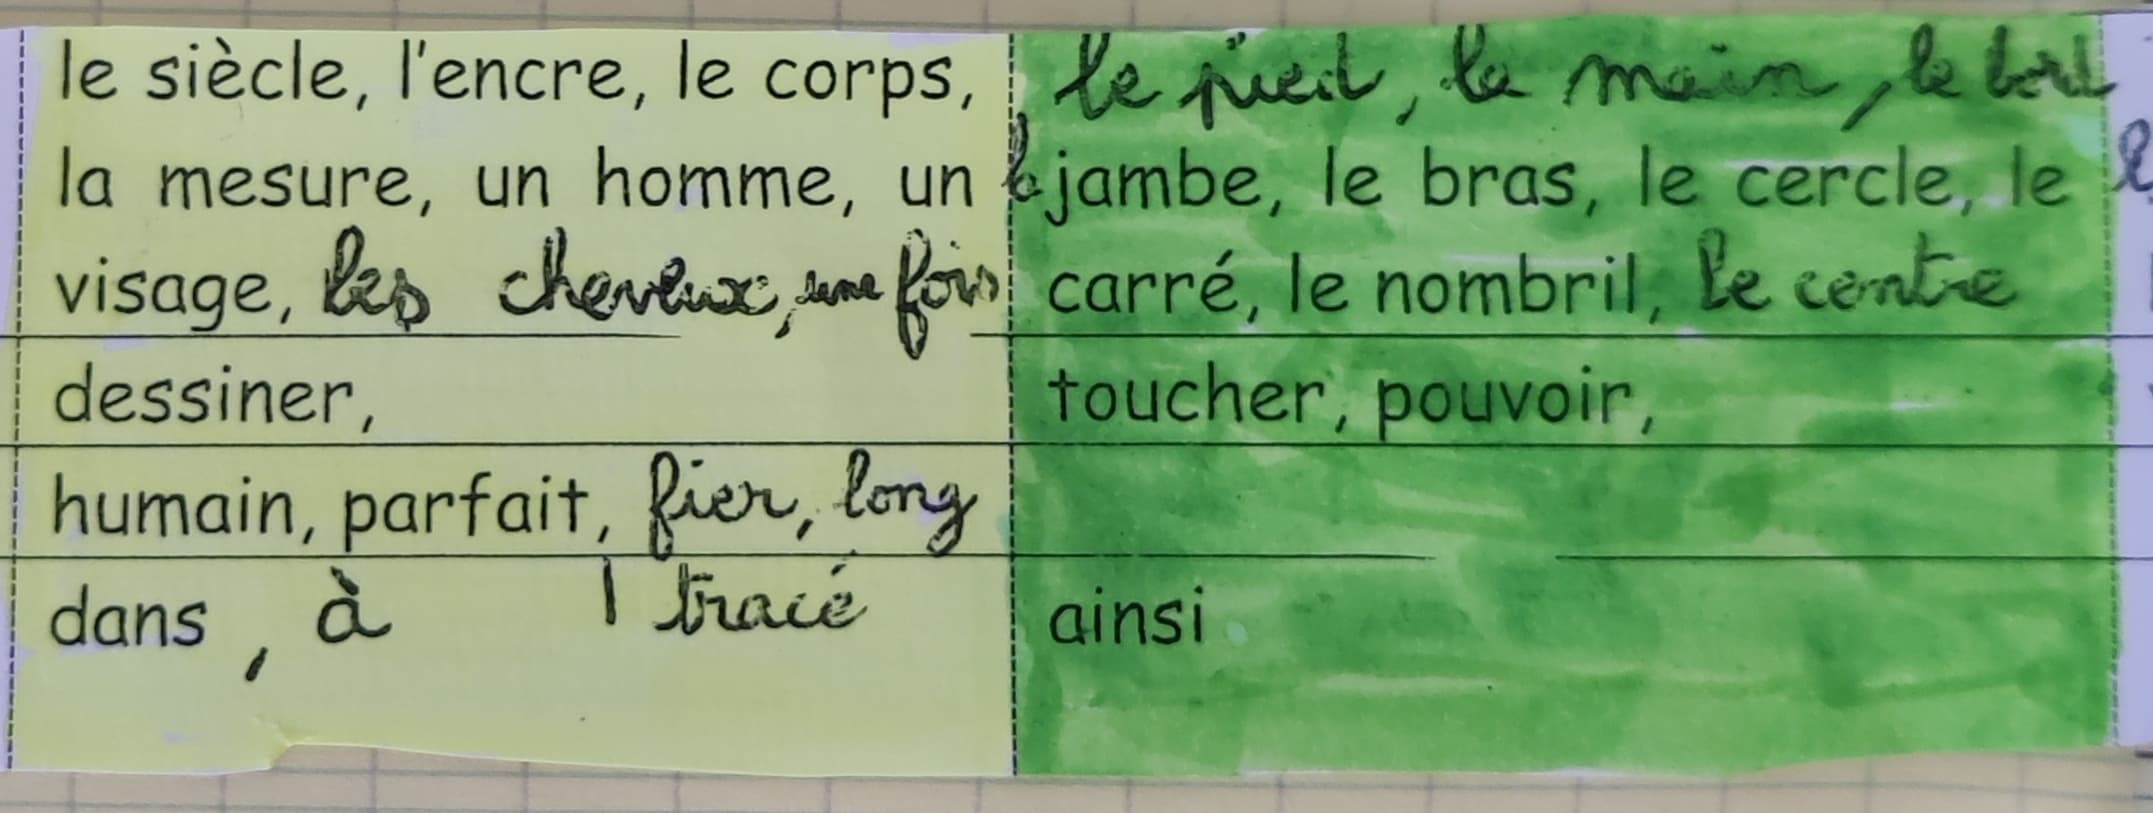 le siècle, l'encre, le corps,
la mesure, un homme, un
visage, les cheveux, une fois
dessiner,
humain, parfait, fier, long
dans, à | tracé
le pied, la main, le bord
la jambe, le bras, le cercle, le
carré, le nombril, le centre
toucher, pouvoir,
ainsi